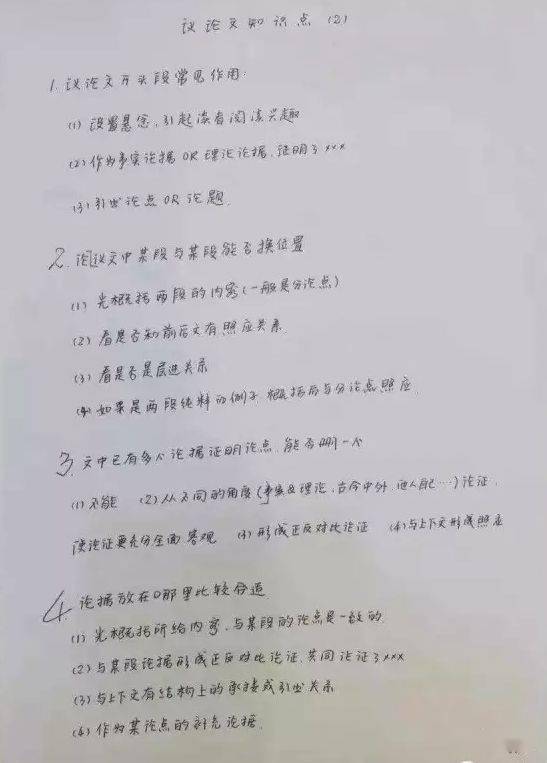 议论文知识点(2)
1.议论文开头段常见作用:
(1)设置悬念,引起读者阅读兴趣
(2)作为事实论据OR理论论据,证明了xxx
(3)引出论点OR论题.
2.论议文中某段与某段能否换位置
(1)先概括两段的内容(一般是分论点)
(2)看是否和前后文有照应关系.
(3)看是否是层进关系
(4)如果是两段纯料的例子.概括后与分论点照应.
3.文中已有多个论据证明论点,能否删一个
(1)不能 (2)从不同的角度(事实&理论,古今中外,他人自己…)论证,
使论证更充分全面客观 (3)形成正反对比论证 (4)与上下文形成照应
4.论据放在哪里比较合适
(1)先概括所给内容,与某段的论点是一致的.
(2)与某段论据形成正反对比论证,共同论证了xxx
(3)与上下文有结构上的承接或引出关系
(4)作为某论点的补充论据.